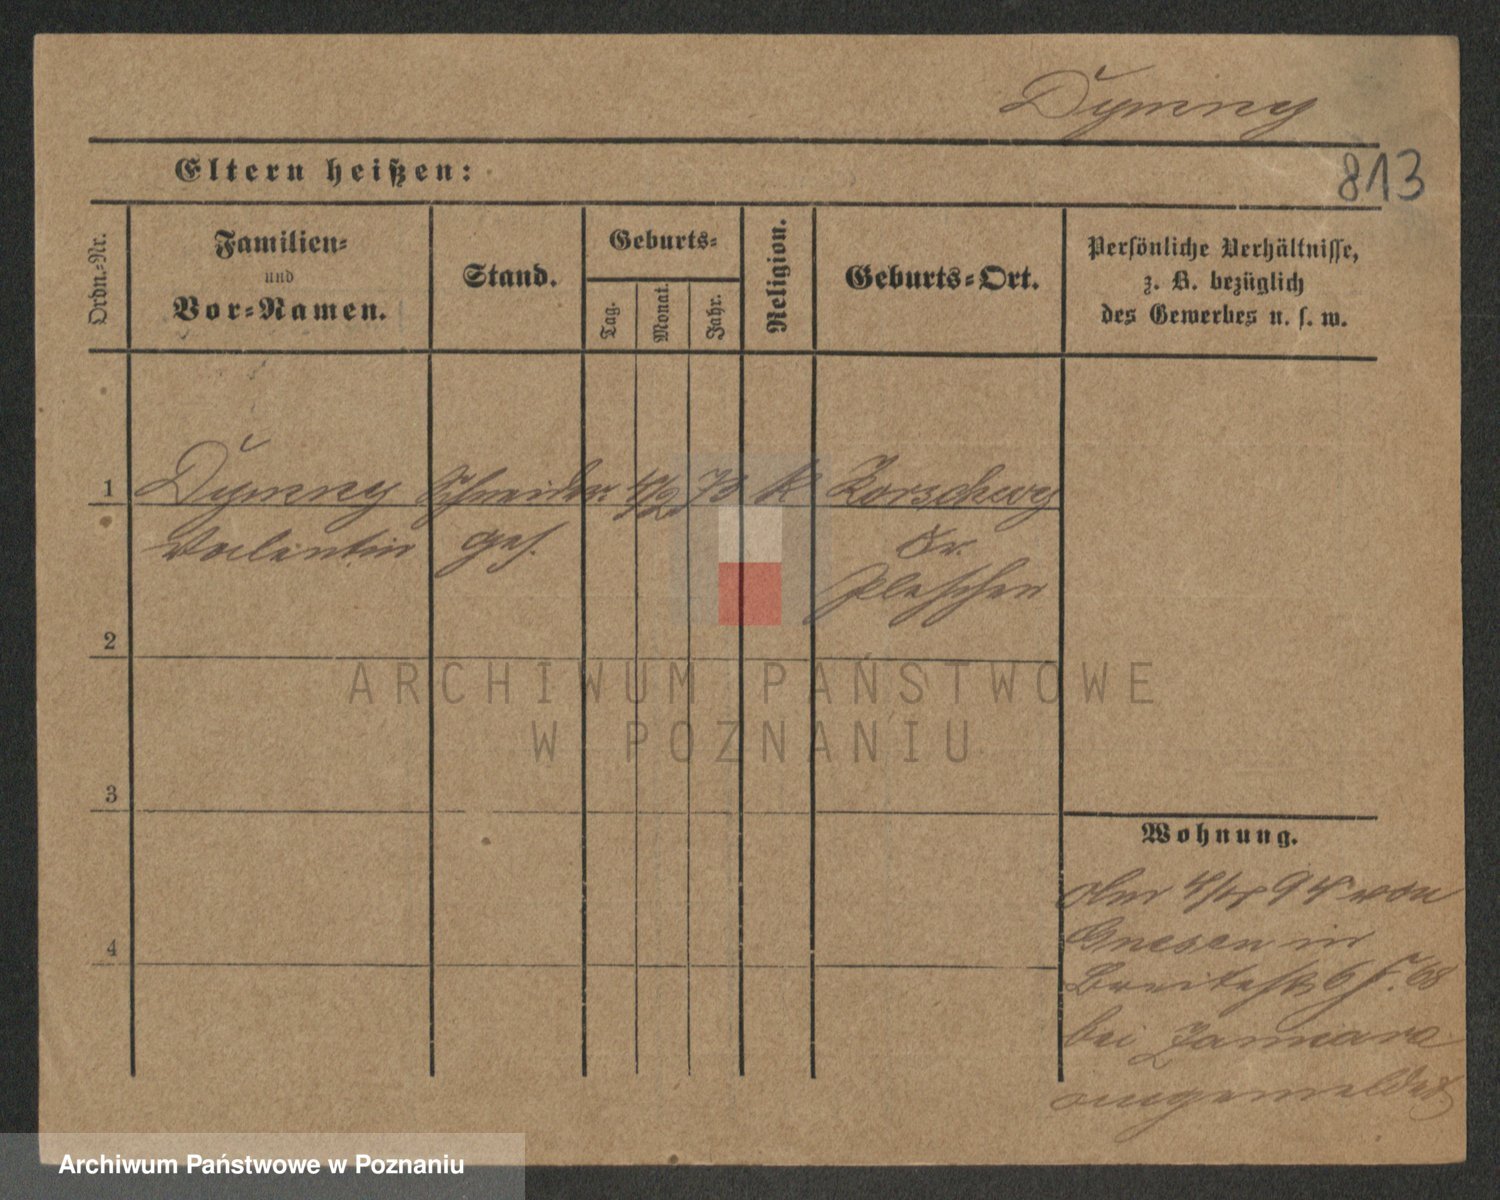 Dymny
813
Eltern heißen:
Ordn.-Nr.
Familien-
und
Vor-Namen.
Stand.
Geburts-
Tag.
Monat.
Jahr.
Religion.
Geburts-Ort.
Persönliche Verhältnisse,
z. B. bezüglich
des Gewerbes u. s. w.
1 Dymny Schneider 4/2 73 K Korschwy
Valentin ges. Kr.
Pleschen
2
ARCHIWUM PAŃSTWOWE
W POZNANIU
3
Wohnung.
94 von
4
Gnesen in
Breitestr
bei
angemeldet
Archiwum Państwowe w Poznaniu